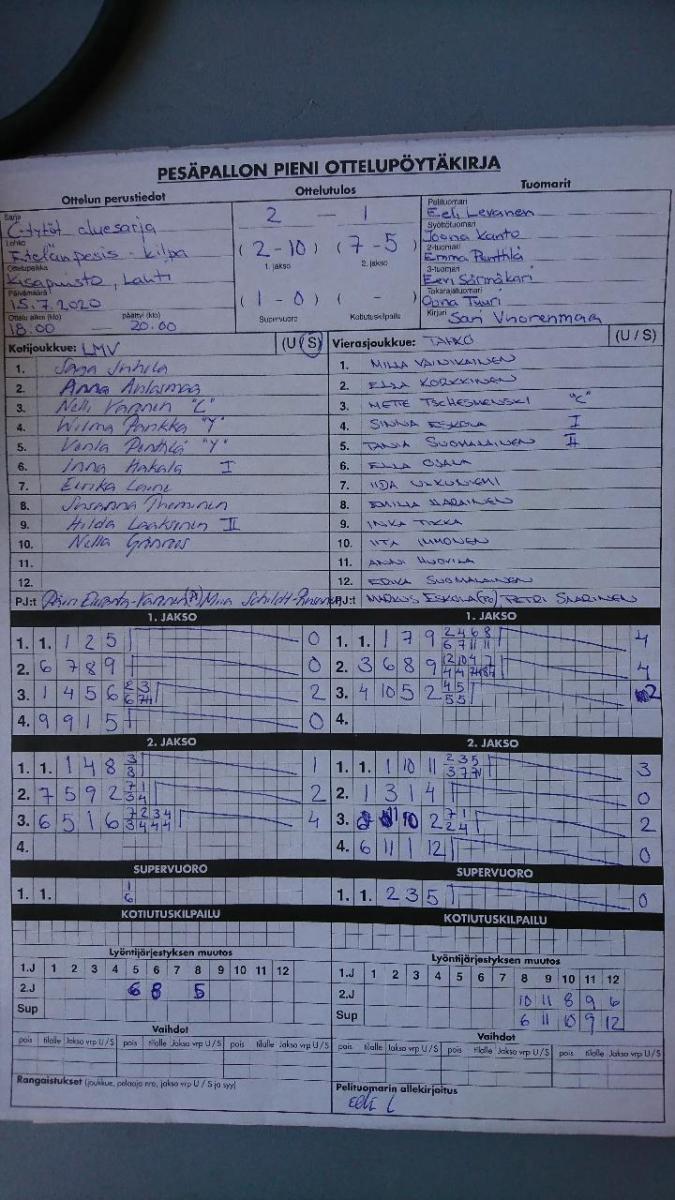 PESÄPALLON PIENI OTTELUPÖYTÄKIRJA
Ottelun perustiedot Ottelutulos Tuomarit
Sarja
C-tytöt aluesarja
Lohko
Etelänpesis - kilpa
Ottelupaikka
Kisapuisto, Lahti
Päivämäärä
15.7.2020
Ottelu alkoi (klo) päättyi (klo)
18.00 — 20.00
2 — 1
( 2-10 ) ( 7-5 )
1. jakso 2. jakso
( 1-0 ) ( - )
Supervuoro Kotiutuskilpailu
Pelituomari
Eeli Levanen
Syöttötuomari
Joona Kanto
2-tuomari
Emma Penttilä
3-tuomari
Eeri Särmäkari
Takarajatuomari
Oona Tuuri
Kirjuri
Sari Vuorenmaa
Kotijoukkue: LMV (U / S)
1. Saga
2. Anna
3. Nelli "C"
4. Wilma "Y"
5. Venla Penttilä "Y"
6. Inna Hakala I
7. Eerika Laine
8. Susanna
9. Hilda Laaksonen II
10. Nella
11.
12.
PJ:t
Vierasjoukkue: TAHKO (U / S)
1. MILJA VÄINIKAINEN
2. ELLA KORKKINEN
3. METTE TSCHESMENSKI "C"
4. SINNA ESKOLA I
5. TANJA SUOMALAINEN II
6. ELLA OJALA
7. IIDA
8. EMILIA
9. INKA
10. IITA IMMONEN
11. ANNI HUOVILA
12. ERIKA SUOMALAINEN
PJ:t MARKUS ESKOLA (PJ), PETRI SAARINEN
1. JAKSO
1. 1. 1 2 5 0
2. 6 7 8 9 0
3. 1 4 5 6 2
4. 9 9 1 5 0
2. JAKSO
1. 1. 1 4 8 3 3 1
2. 7 5 9 2 7 1 3 4 2
3. 6 5 1 6 7 2 3 4 3 4 4 4 4
4.
SUPERVUORO
1. 1. 1 6
KOTIUTUSKILPAILU
1. JAKSO
1. 1. 1 7 9 2 4 6 8 6 7 11 11 4
2. 3 6 8 9 4
3. 4 10 5 2 4 5 5 5 2
4.
2. JAKSO
1. 1. 1 10 11 2 3 5 3
2. 1 3 1 4 0
3. 10 2 7 1 2 4 2
4. 6 11 1 12 0
SUPERVUORO
1. 1. 2 3 5 0
KOTIUTUSKILPAILU
Lyöntijärjestyksen muutos
1.J 1 2 3 4 5 6 7 8 9 10 11 12
2.J 6 8 5
Sup
Vaihdot
pois tilalle Jakso vrp U / S pois tilalle Jakso vrp U / S pois tilalle Jakso vrp U / S
Rangaistukset (joukkue, pelaaja nro, jakso vrp U / S ja syy)
Lyöntijärjestyksen muutos
1.J 1 2 3 4 5 6 7 8 9 10 11 12
2.J 10 11 8 9 6
Sup 6 11 10 9 12
Vaihdot
pois tilalle Jakso vrp U / S pois tilalle Jakso vrp U / S pois tilalle Jakso vrp U / S
Pelituomarin allekirjoitus
Eeli L